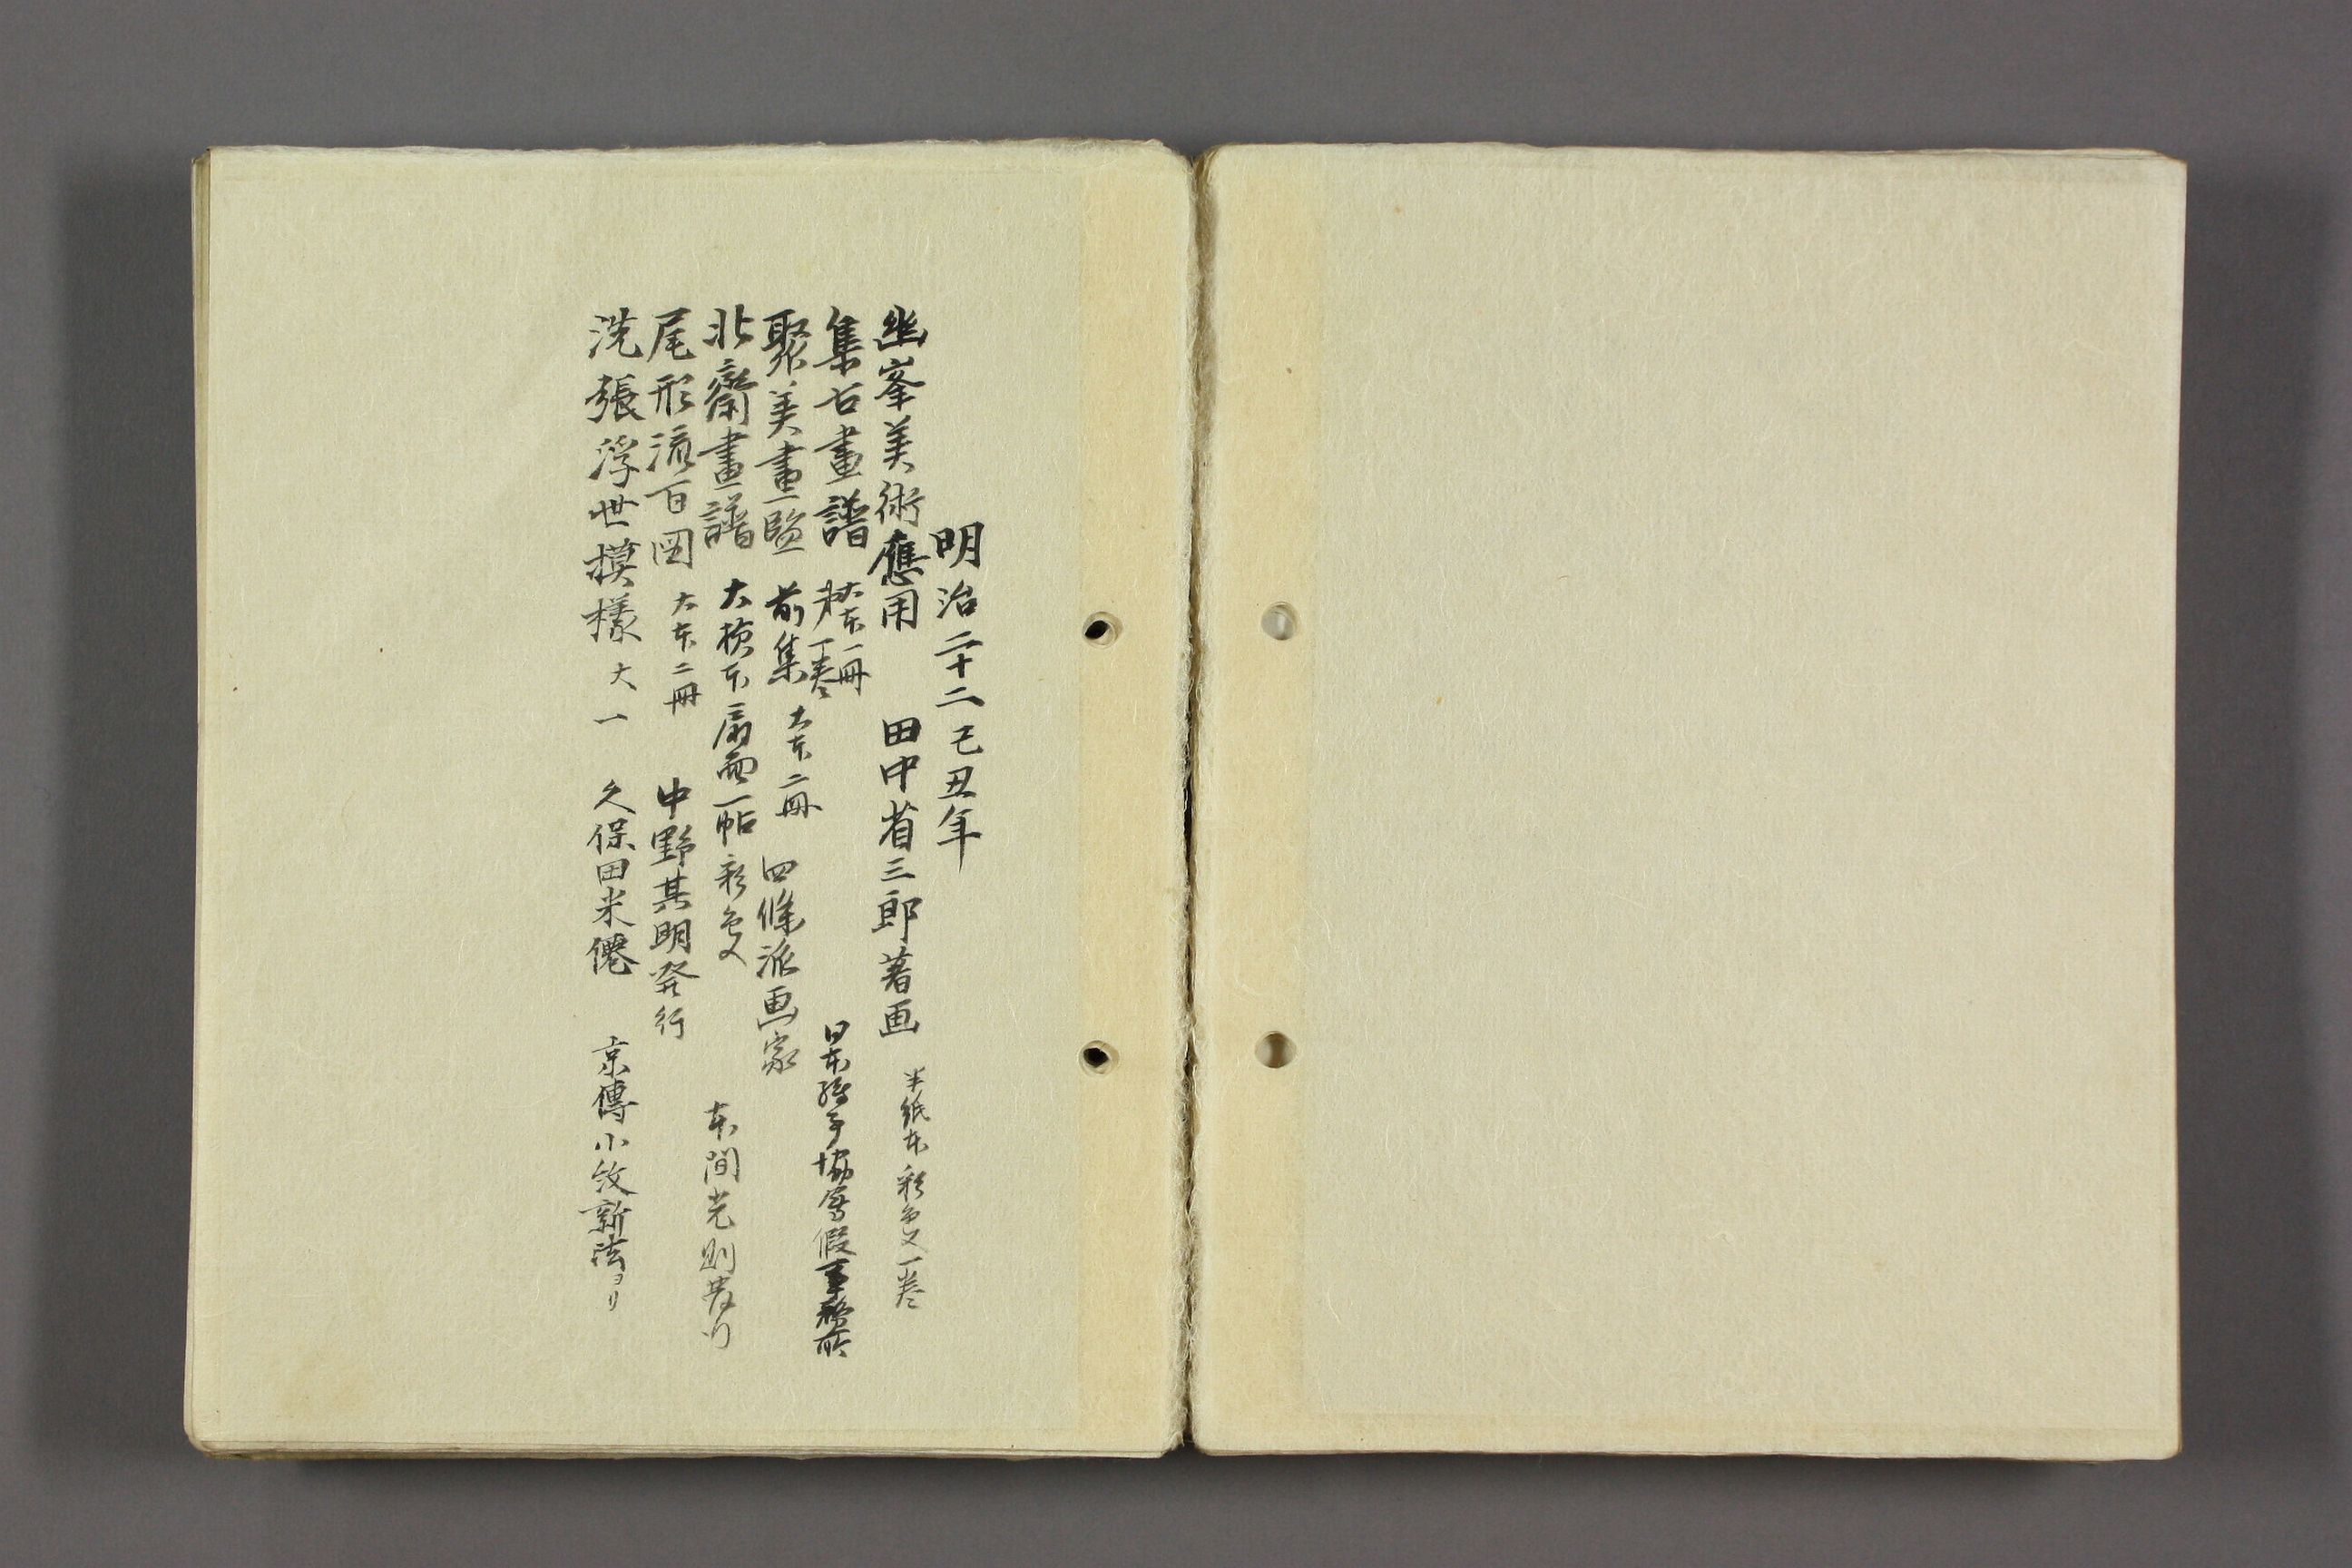 明治二十二己丑年
幽峯美術應用 田中省三郎著画 半紙本彩色又一巻
集古畫譜 大本一冊 一巻 日本繪手協會假事務所
聚美畫監 前集 大本二冊 四條派画家
北齋畫譜 大横本扇面一帖彩色又 本間光則発行
尾形流百図 大本二冊 中野其明発行
洗張浮世模樣 大一 久保田米僊 京傳小紋新法ヨリ